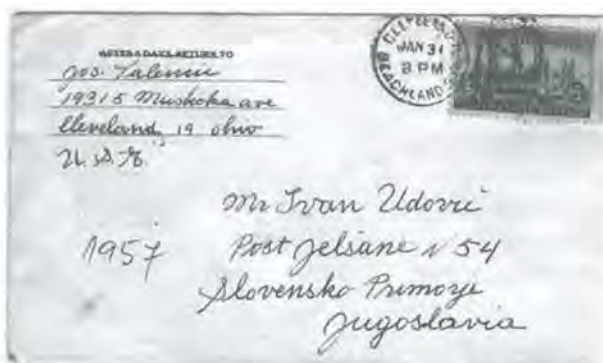 AFTER 5 DAYS, RETURN TO
Jos. Valencic
19315 Muskoka ave
Cleveland, 19 ohio
U.S.A.
CLEVELAND
JAN 31
8 PM
BEACHLAND
Mr Ivan Udovic
1957
Post Jelšane N 54
Slovensko Primorje
Jugoslavia